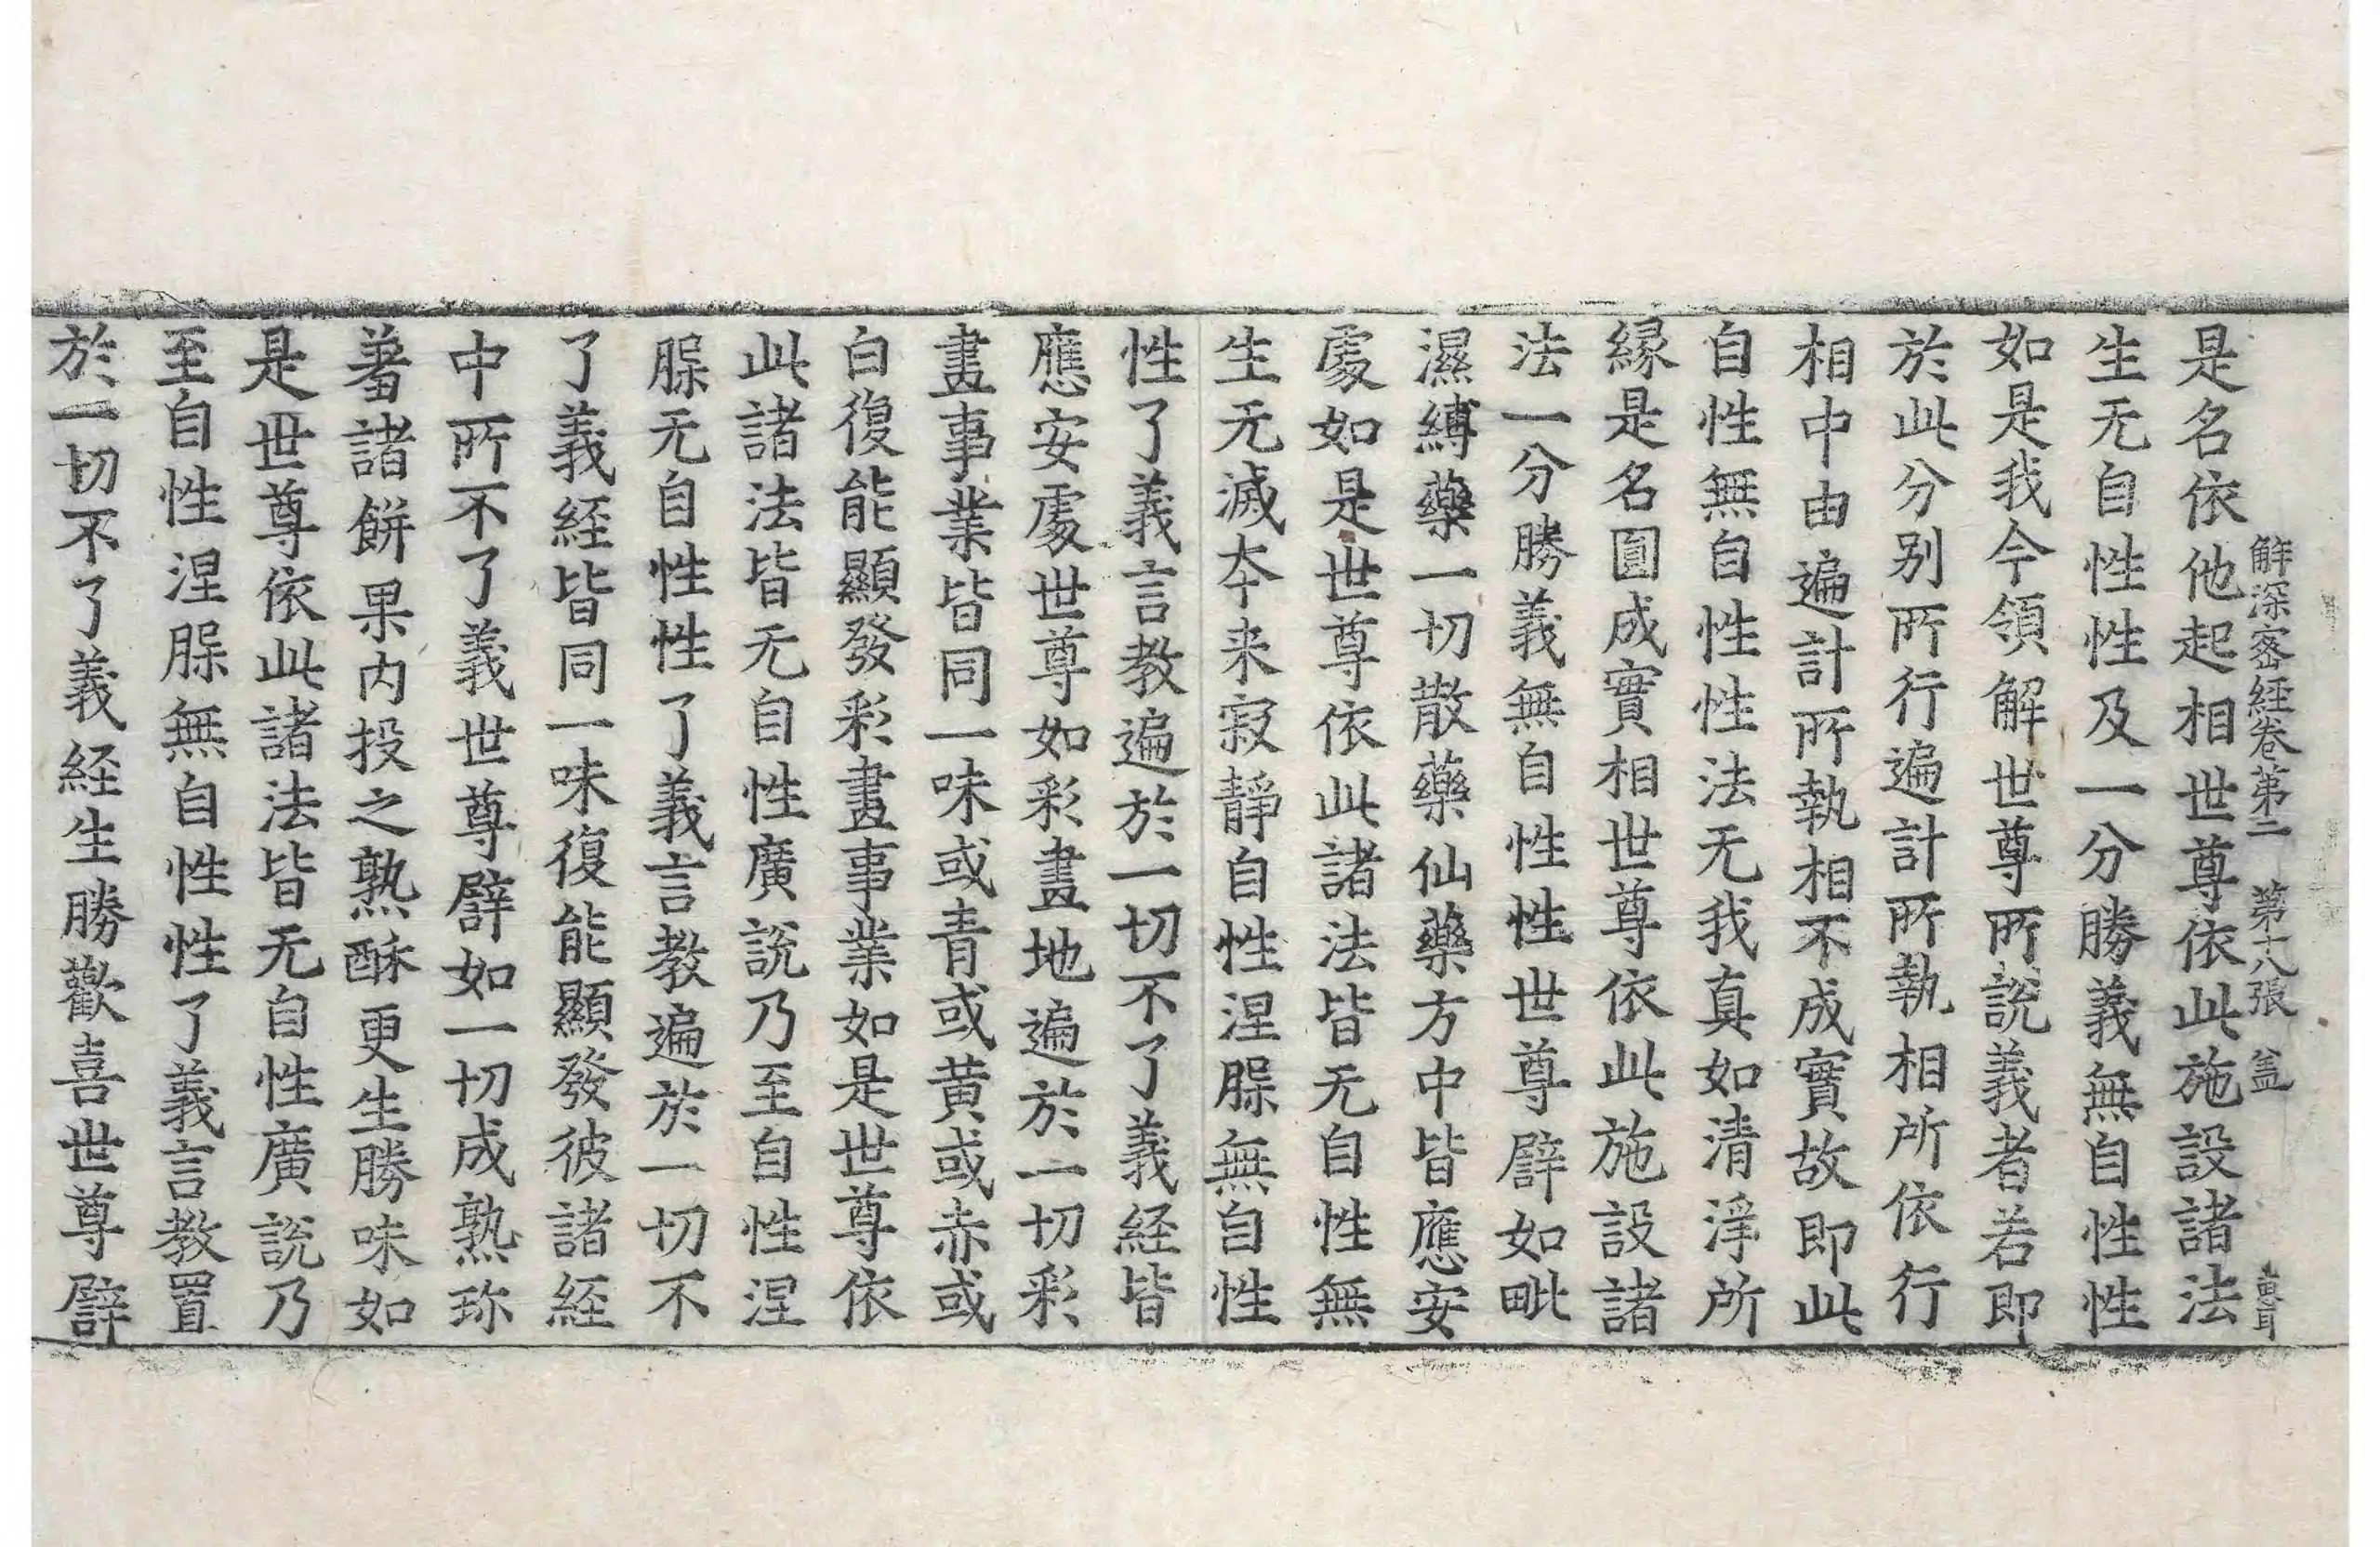 解深密經卷第二　第十八張　盖
是名依他起相世尊依此施設諸法
生无自性性及一分勝義無自性性
如是我今領解世尊所說義者若即
於此分别所行遍計所執相所依行
相中由遍計所執相不成實故即此
自性無自性性法无我真如清淨所
縁是名圓成實相世尊依此施設諸
法一分勝義無自性性世尊譬如毗
濕縛藥一切散藥仙藥方中皆應安
處如是世尊依此諸法皆无自性無
生无滅夲来寂靜自性涅槃無自性
性了義言教遍於一切不了義経皆
應安處世尊如彩畫地遍於一切彩
畫事業皆同一味或青或黄或赤或
白復能顯發彩畫事業如是世尊依
此諸法皆无自性廣說乃至自性涅
槃无自性性了義言教遍於一切不
了義経皆同一味復能顯發彼諸経
中所不了義世尊譬如一切成熟珎
羞諸餅果内投之熟酥更生勝味如
是世尊依此諸法皆无自性廣說乃
至自性涅槃無自性性了義言教置
於一切不了義経生勝歡喜世尊譬